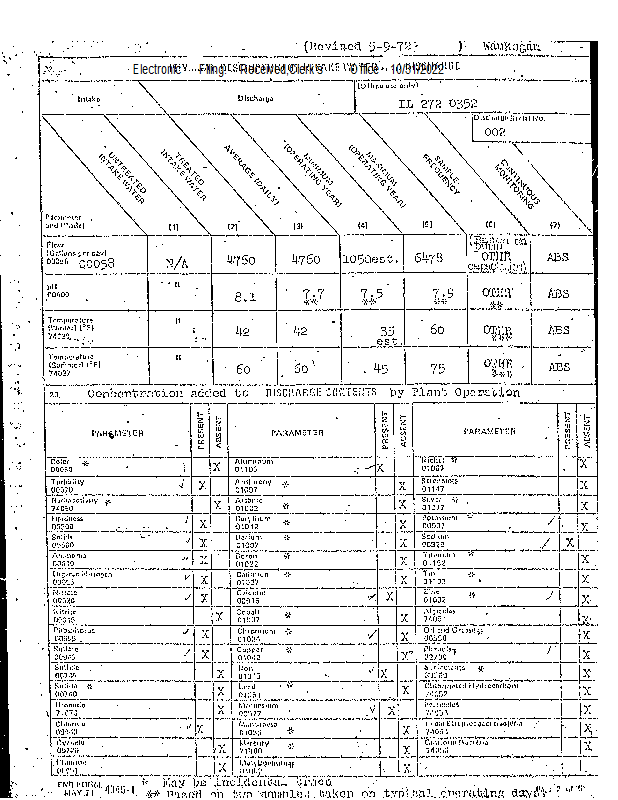 (Revised 5-9-72) Waukegan
Electronic Filing - Received, Clerk's Office - 10/31/2022
(Office use only)
Intake
Discharge
IL 272 0352
Discharge Serial No.
002
UNTREATED INTAKE WATER
TREATED INTAKE WATER
AVERAGE (DAILY)
MINIMUM (OPERATING YEAR)
MAXIMUM (OPERATING YEAR)
SAMPLE FREQUENCY
CONTINUOUS MONITORING
Parameter and (Code)
(1) (2) (3) (4) (5) (6) (7)
Flow
(Gallons per day)
00056 00058 N/A 4760 4760 1058est. 6478 OTHR ABS
pH
00400 " 8.1 7.7 ** 7.5 ** 7.5 ** OTHR ** ABS
Temperature
(Winter) (°F)
74028 " 42 42 35 est 60 OTHR *** ABS
Temperature
(Summer) (°F)
74027 " 60 60 45 75 OTHR *** ABS
20. Concentration added to DISCHARGE CONTENTS by Plant Operation
PARAMETER PRESENT ABSENT PARAMETER PRESENT ABSENT PARAMETER PRESENT ABSENT
Color * X Aluminum 01105 ✓ X Nickel * 01067 X
Turbidity ✓ X Antimony 01097 * X Selenium 01147 X
Radioactivity * 74050 X Arsenic 01002 * X Silver * 01077 X
Hardness 00900 ✓ X Beryllium 01012 * X Potassium 00937 ✓ X
Solids 00500 ✓ X Barium 01007 * X Sodium 00929 ✓ X
Ammonia 00610 ✓ X Boron 01022 * X Titanium 01152 X
Organic Nitrogen 00605 ✓ X Cadmium 01027 * X Tin 01102 * X
Nitrate 00620 ✓ X Calcium 00916 ✓ X Zinc 01092 * ✓ X
Nitrite 00615 X Cobalt 01037 * X Algicides 74051 X
Phosphorus 00665 ✓ X Chromium * 01034 ✓ X Oil and Grease * 00550 X
Sulfate 00945 ✓ X Copper * 01042 X Phenols * 32730 X
Sulfide 00745 X Iron 01045 ✓ X Surfactants * 38260 X
Sulfite * 00740 X Lead * 01051 X Chlorinated Hydrocarbons 74052 X
Bromide 71870 X Magnesium 00927 ✓ X Pesticides 74053 X
Chloride 00940 ✓ X Manganese 01055 * X Fecal Streptococci Bacteria 74054 X
Cyanide 00720 X Mercury 71900 * X Coliform Bacteria 74056 X
Fluoride 00951 X Molybdenum 01062 X
ENG FORM 4345-1 * May be incidental trace
MAY 71 ** Based on two samples taken on typical operating days